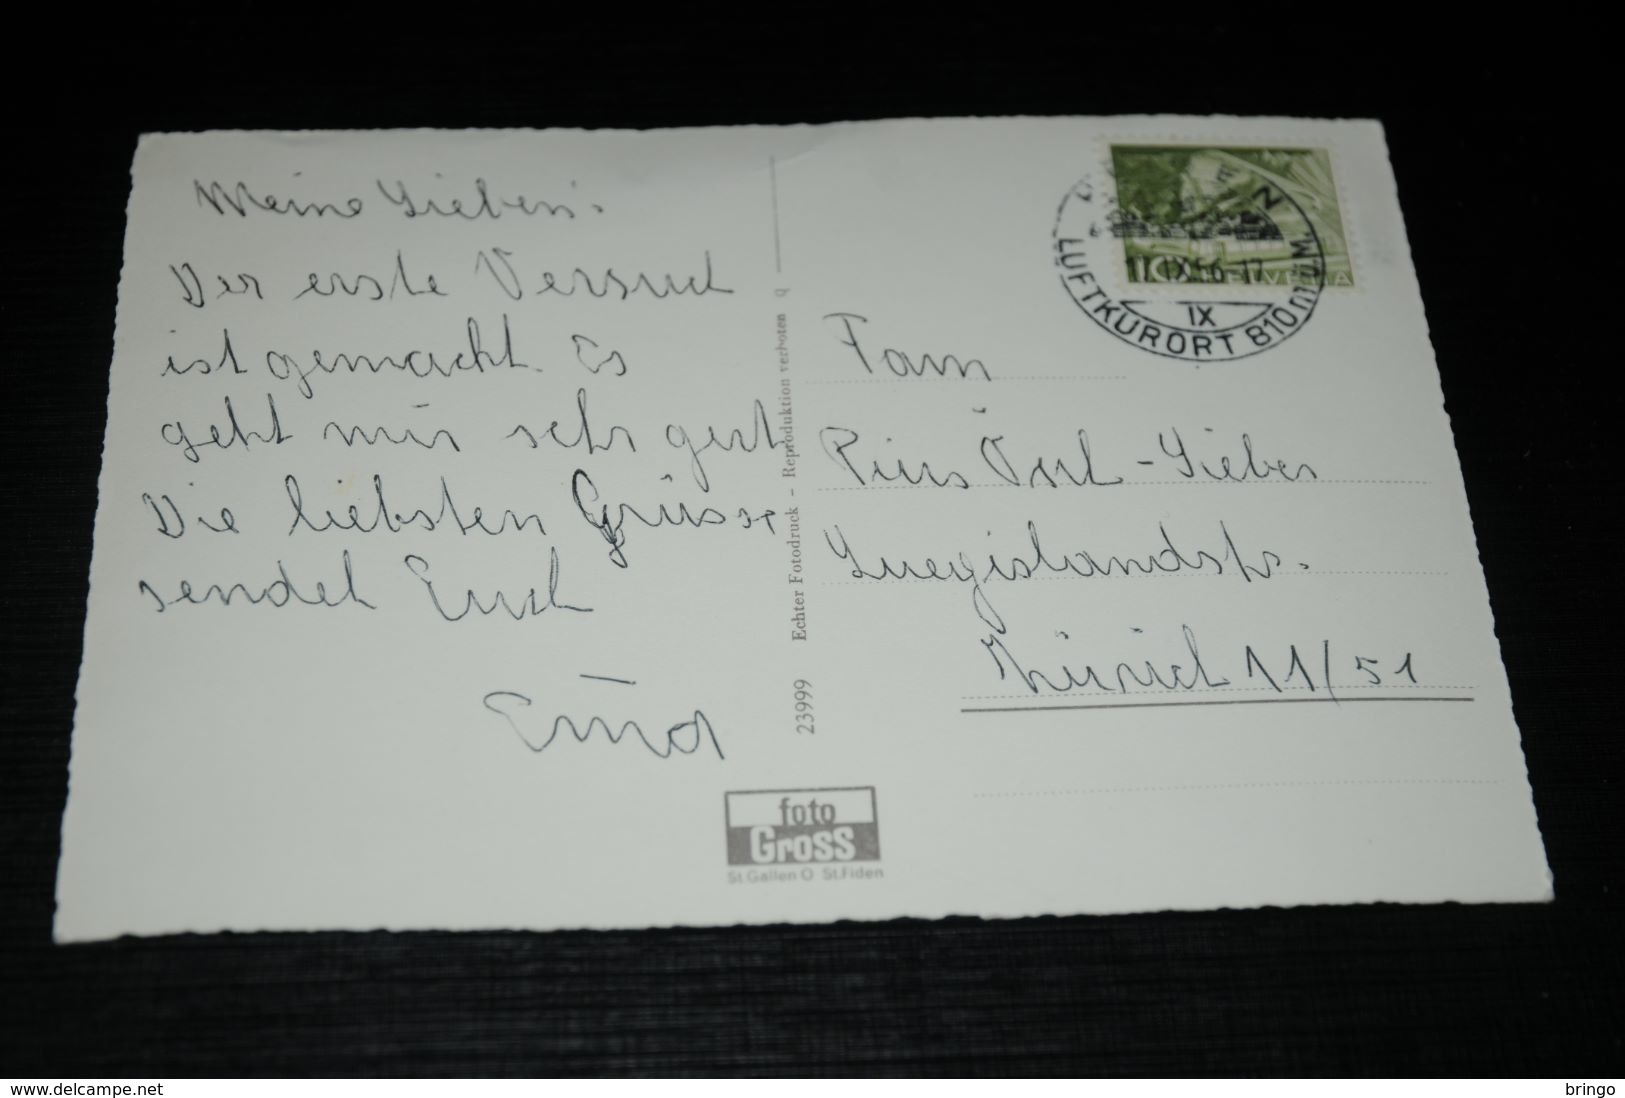 Meine Lieben:
Der erste Versuch
ist gemacht. Es
geht mir sehr gut
Die liebsten Grüsse
sendet Euch
Fam
Pius -Lieber
Luegislandstr.
Zürich 11/51
17.IX.56-17
HELVETIA
IX
LUFTKURORT 810 m ü.M.
23999 Echter Fotodruck - Reproduktion verboten q
foto
Gross
St.Gallen O St.Fiden
www.delcampe.net
bringo